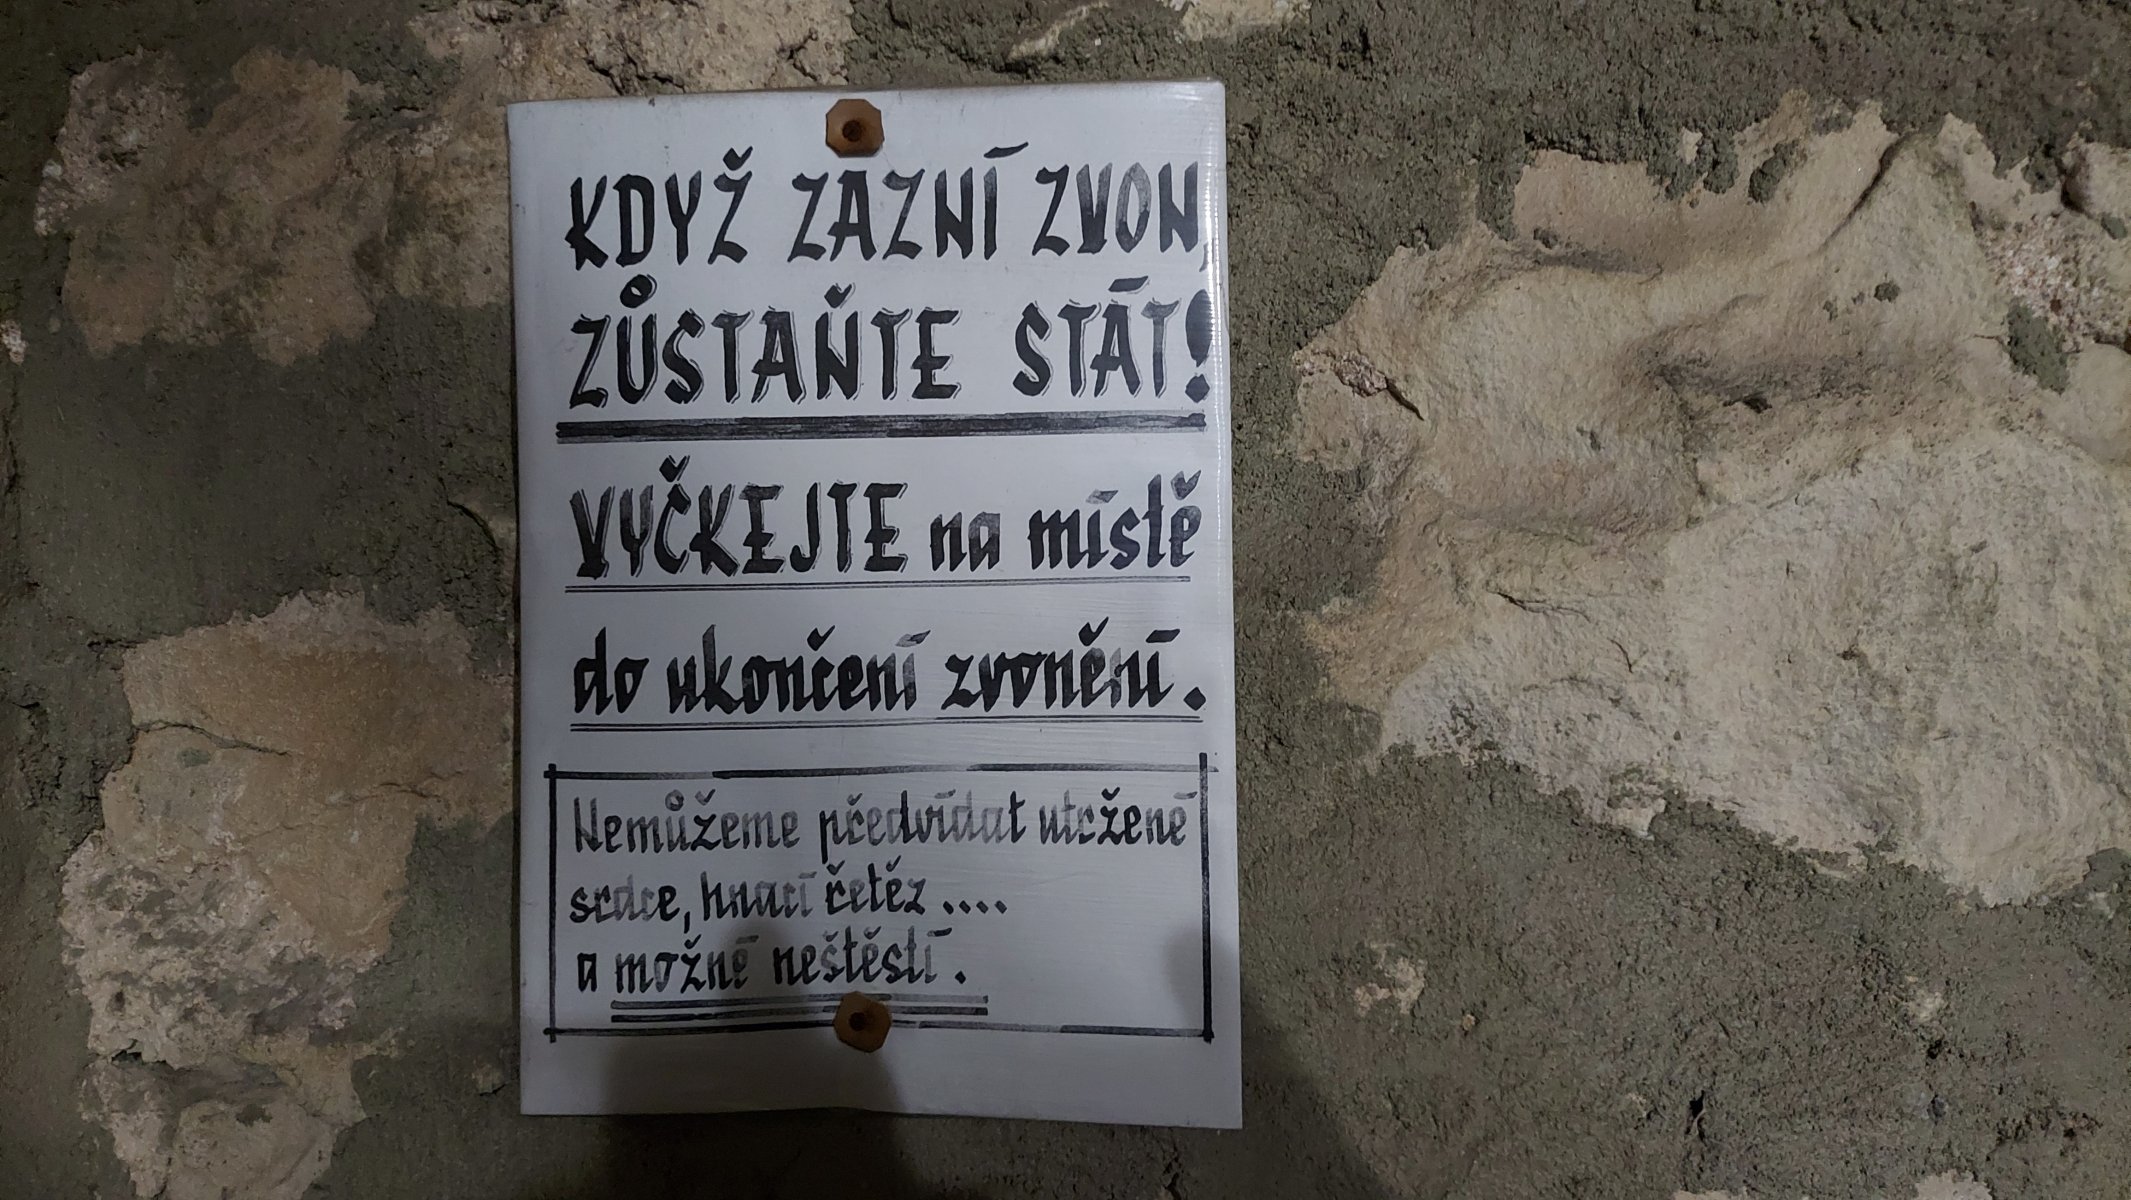 KDYŽ ZAZNÍ ZVON,
ZŮSTAŇTE STÁT!
VYČKEJTE na místě
do ukončení zvonění.
Nemůžeme předvídat utržené
srdce, hnací řetěz....
a možné neštěstí.